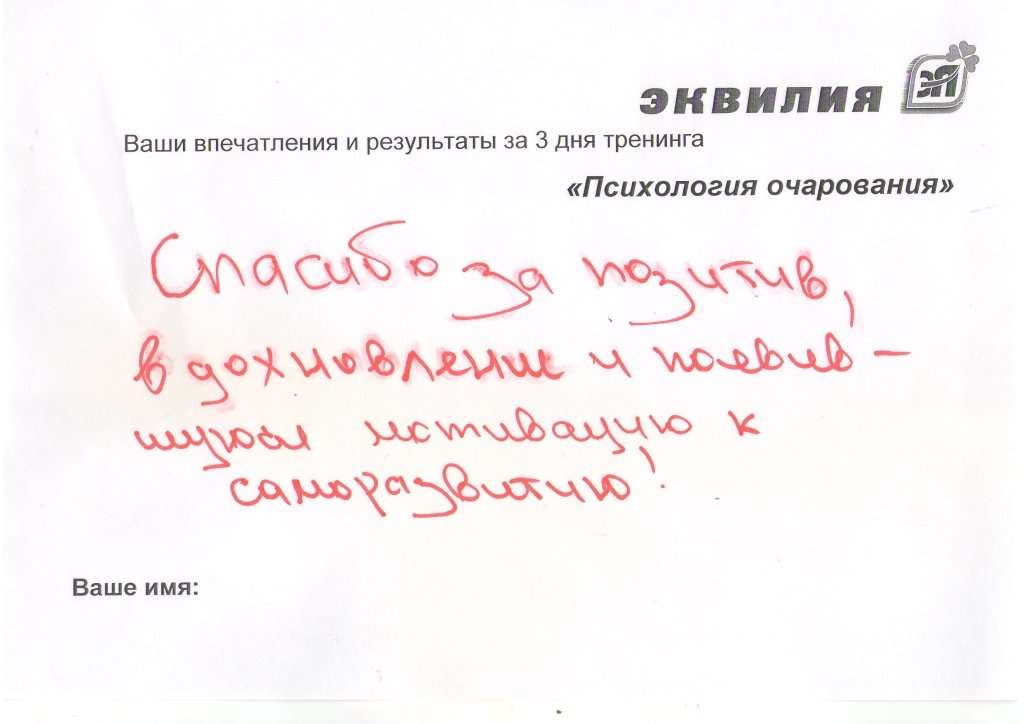 ЭКВИЛИЯ ЭЛ
Ваши впечатления и результаты за 3 дня тренинга
«Психология очарования»
Спасибо за позитив,
вдохновление и появив-
шуюся мотивацию к
саморазвитию!
Ваше имя: